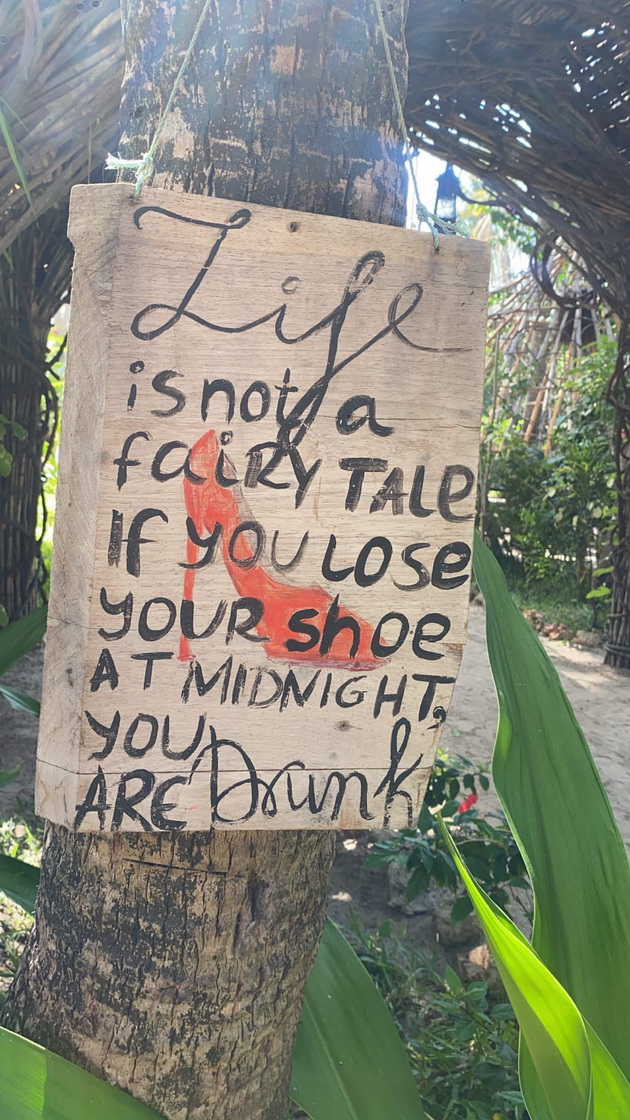 Life
is not a
faiRY TALE
If YOU LOSe
YOUR shoe
AT MIDNIGHT,
YOU
ARE Drunk